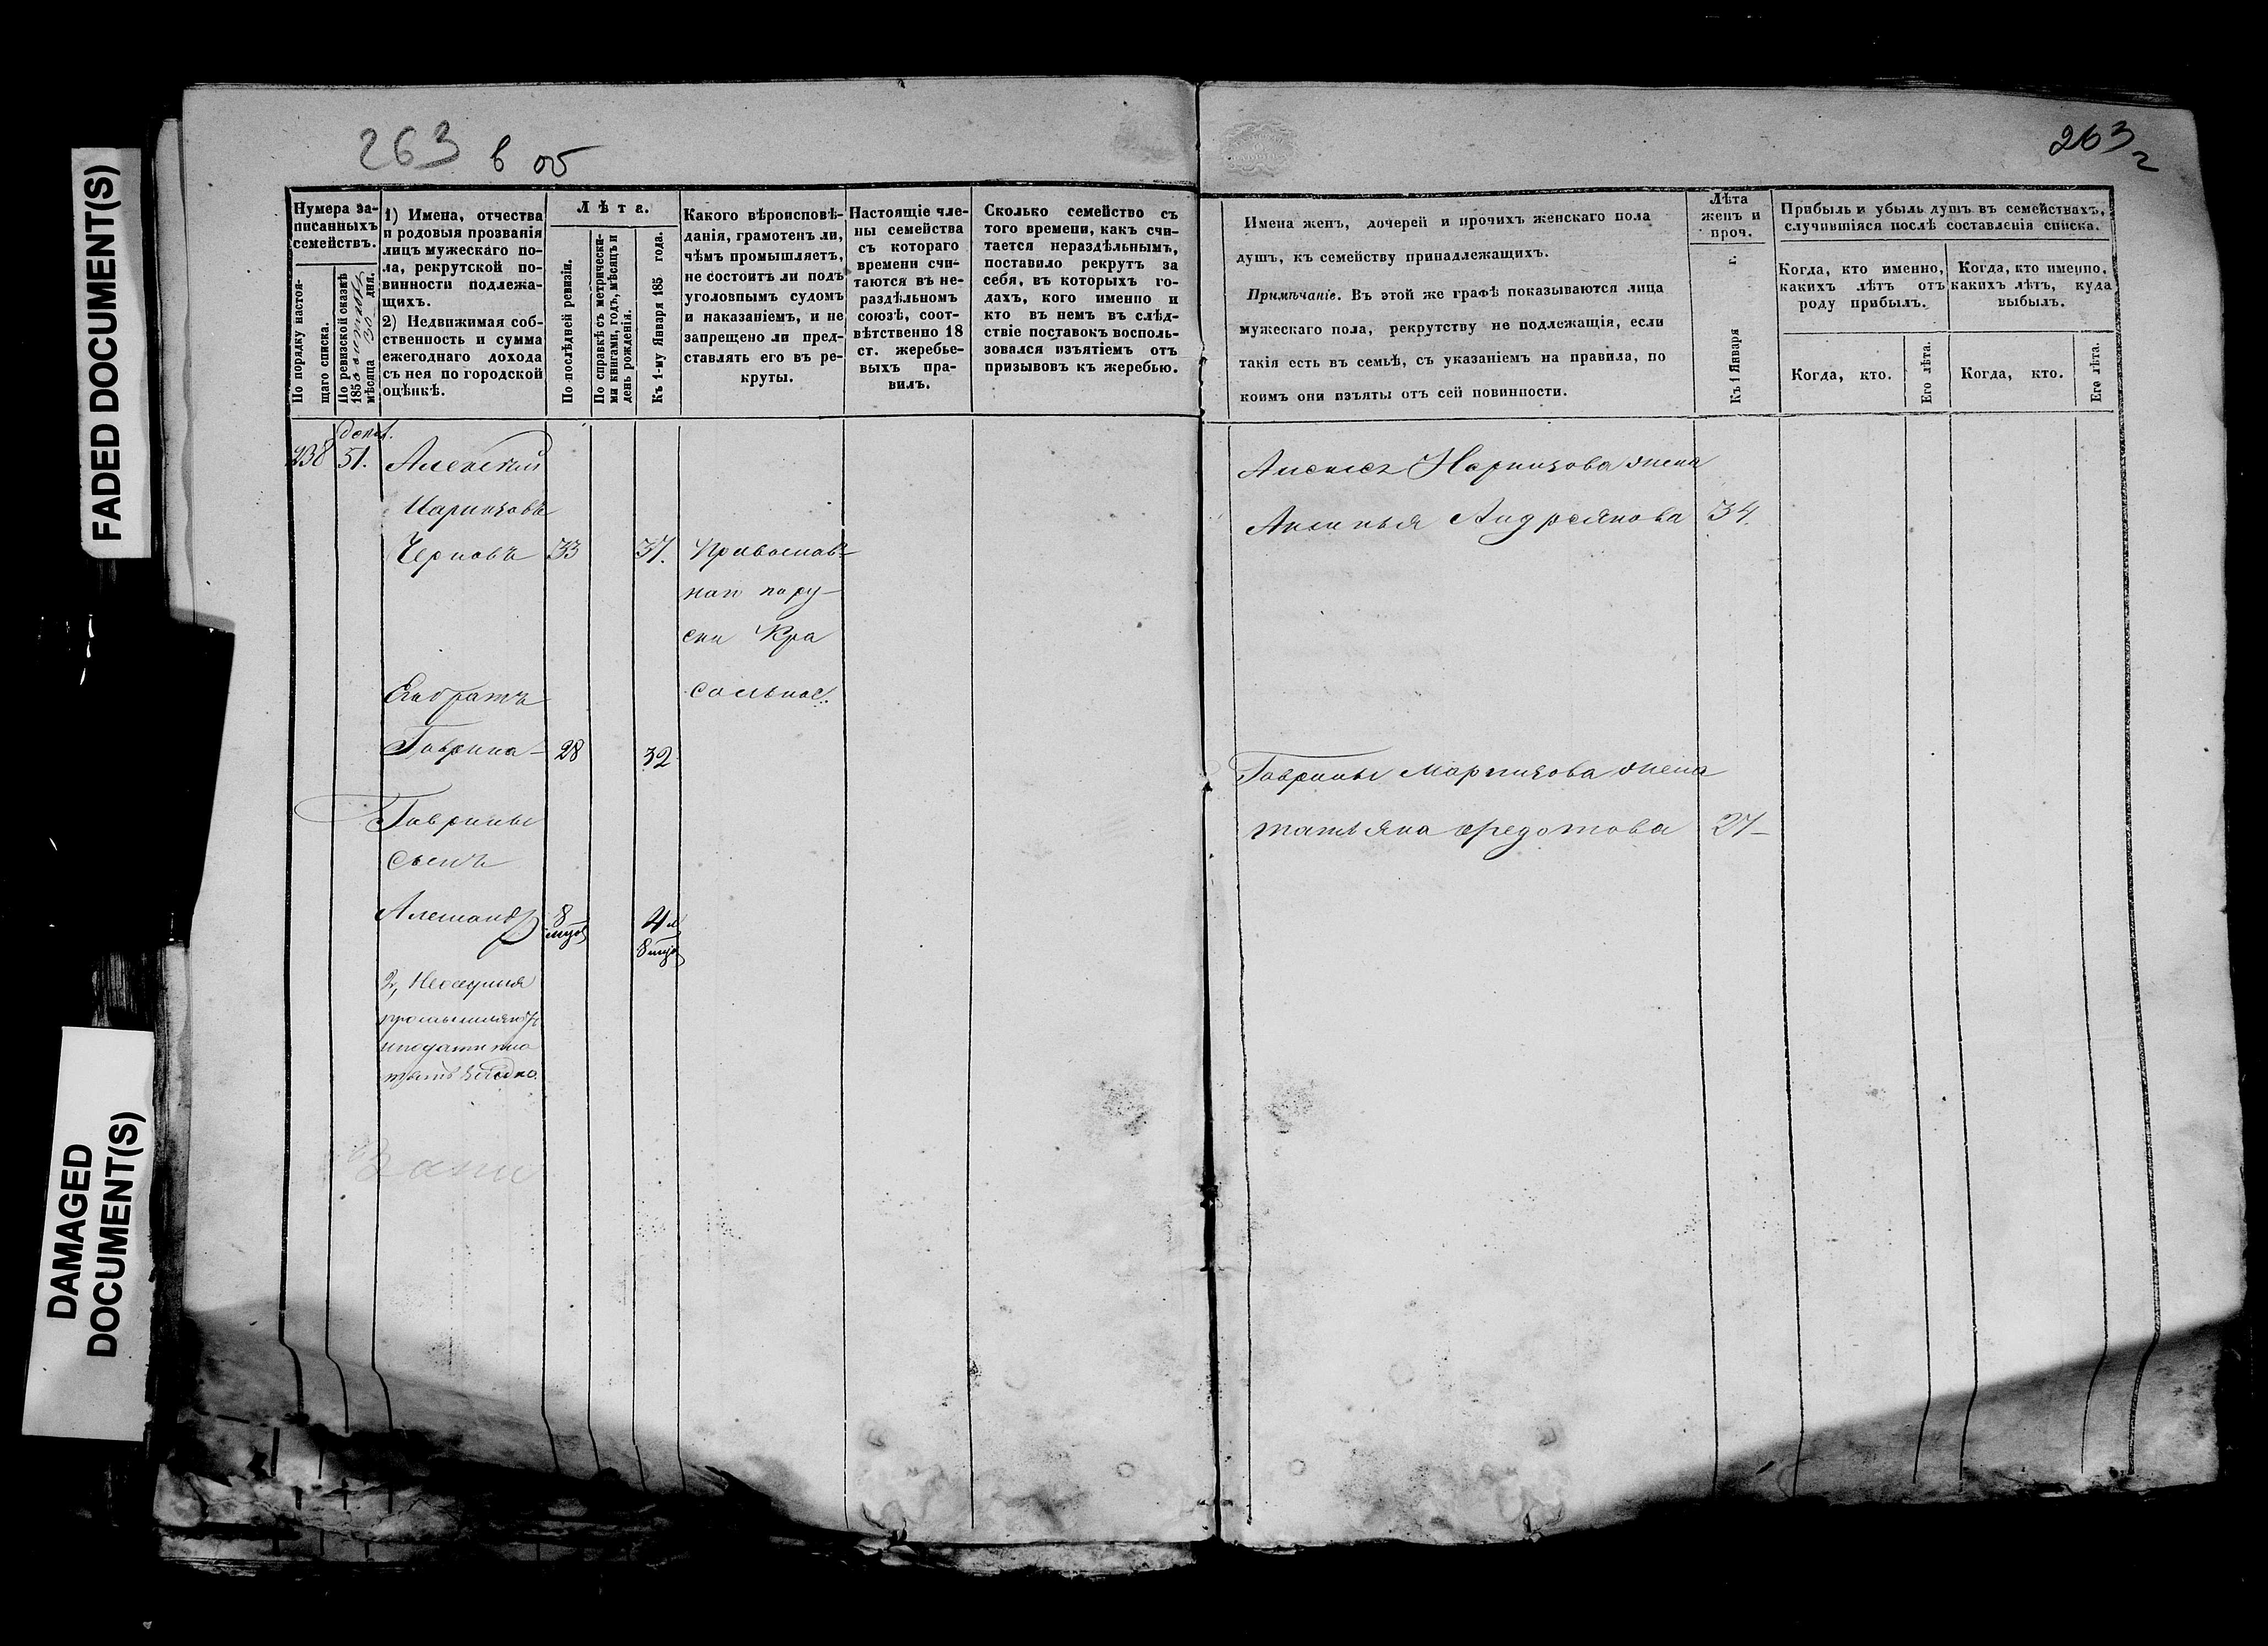 FADED DOCUMENT(S)
DAMAGED
DOCUMENT(S)
263 в об
263
г
Нумера за-
писанныхъ
семействъ.
По порядку настоя-
щаго списка.
По ревизской сказкѣ
185
мѣсяца 30 дня.
1) Имена, отчества
и родовыя прозванія
лицъ мужескаго по-
ла, рекрутской по-
винности подлежа-
щихъ.
2) Недвижимая соб-
ственность и сумма
ежегоднаго дохода
съ нея по городской
оцѣнкѣ.
Лѣта.
По послѣдней ревизіи.
По справкѣ съ метрически-
ми книгами, годъ, мѣсяцъ и
день рожденія.
Къ 1-му Января 185 года.
Какого вѣроисповѣ-
данія, грамотенъ ли,
чѣмъ промышляетъ,
не состоитъ ли подъ
уголовнымъ судомъ
и наказаніемъ, и не
запрещено ли пред-
ставлять его въ ре-
круты.
Настоящіе чле-
ны семейства
съ котораго
времени счи-
таются въ не-
раздѣльномъ
союзѣ, соот-
вѣтственно 18
ст. жеребье-
выхъ пра-
вилъ.
Сколько семейство съ
того времени, какъ счи-
тается нераздѣльнымъ,
поставило рекрутъ за
себя, въ которыхъ го-
дахъ, кого именно и
кто въ немъ въ слѣд-
ствіе поставокъ восполь-
зовался изъятіемъ отъ
призывовъ къ жеребью.
Имена женъ, дочерей и прочихъ женскаго пола
душъ, къ семейству принадлежащихъ.
Примѣчаніе. Въ этой же графѣ показываются лица
мужескаго пола, рекрутству не подлежащія, если
такія есть въ семьѣ, съ указаніемъ на правила, по
коимъ они изъяты отъ сей повинности.
Лѣта
женъ и
проч.
Къ 1 Января г.
Прибыль и убыль душъ въ семействахъ,
случившіяся послѣ составленія списка.
Когда, кто именно,
какихъ лѣтъ отъ
роду прибылъ.
Когда, кто именно,
какихъ лѣтъ, куда
выбылъ.
Когда, кто.
Его лѣта.
Когда, кто.
Его лѣта.
238 51. Алексѣй
Черновъ 33 37. Православ-
наго
Его братъ
Гаврила 28 32
Гаврилы
сынъ
Александр 8 4
8
жена
Аксинья Андреянова 34.
Гаврилы жена
Татьяна Федотова 27